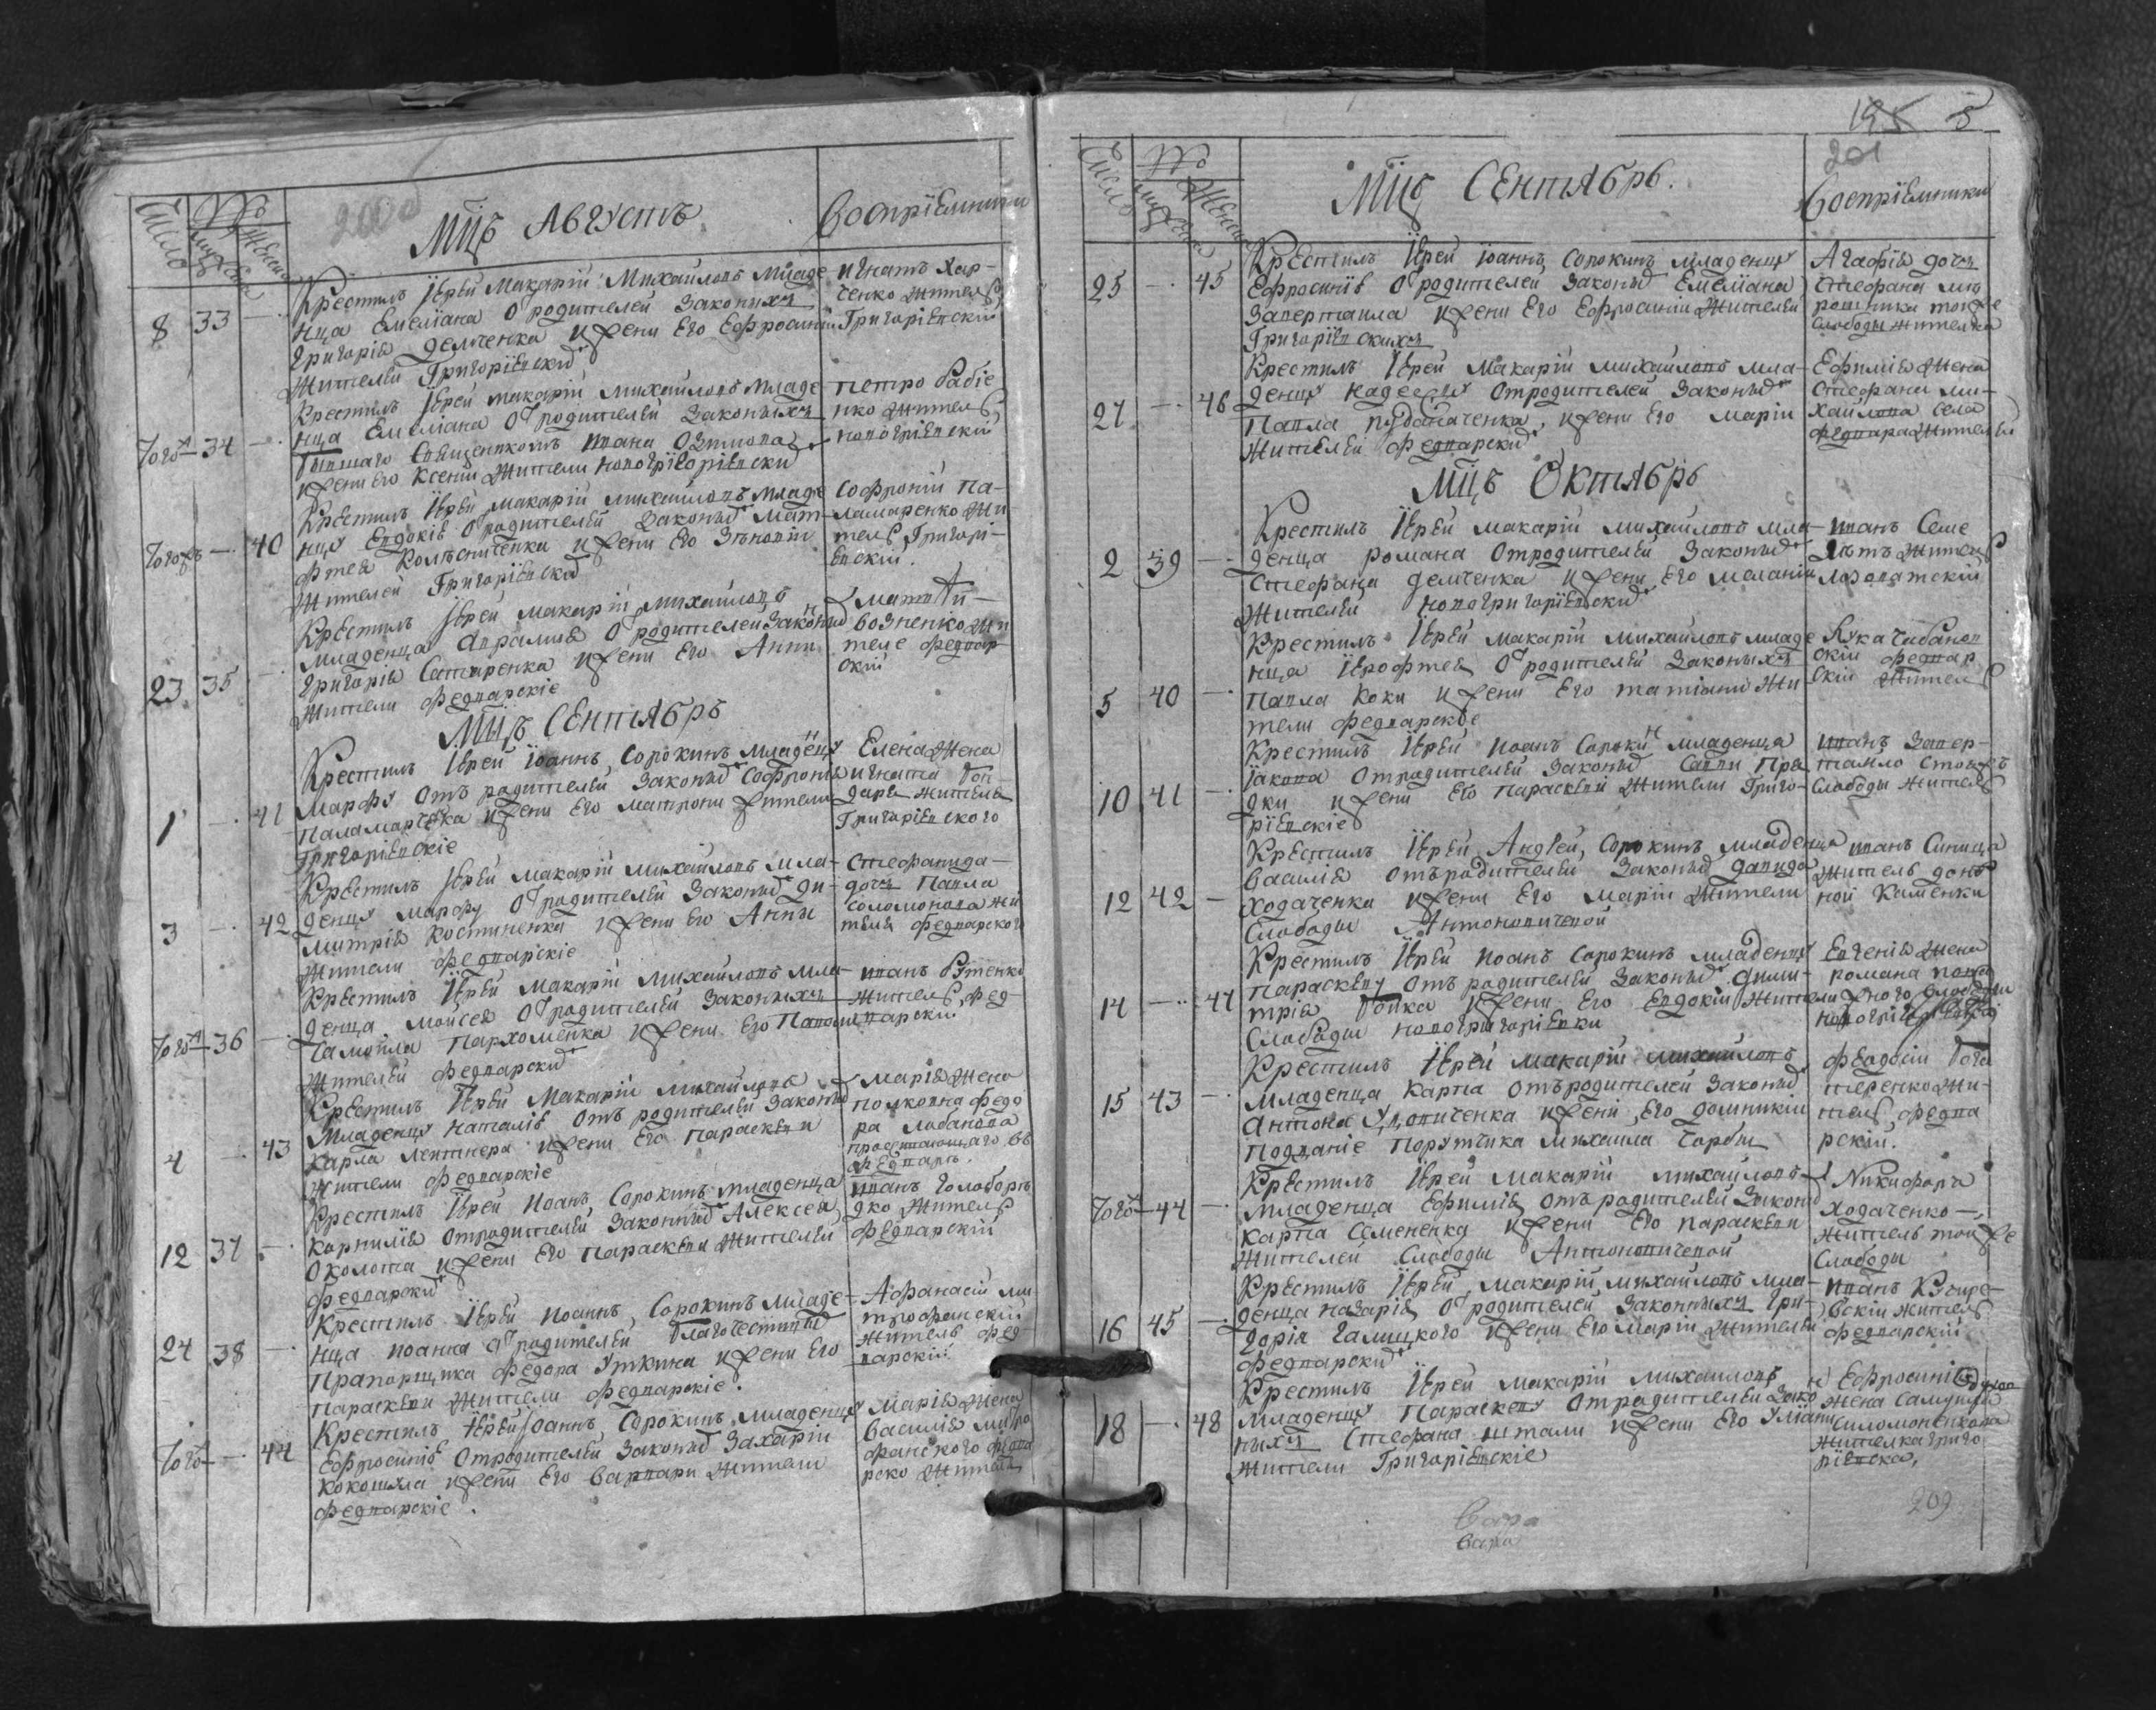 200
Число
№
мужеска
женска
Мцъ Августъ
Воспріемники
8 33
Крестилъ Іерей Макарій Михайловъ младе
нца Емеліана От родителей Законныхъ
Григорія Демченка и жены Его Ефросиніи
Жителей Григоріевскихъ
Игнатъ Хар-
ченко Житель
Григоріевскій
Того 34
Крестилъ Іерей Макарій Михайловъ младе
нца Емеліана От родителей Законныхъ
бывшаго Священникомъ Ивана
и жены Его Ксеніи Жители Новогригоріевски
Петро Рабіе
нко Житель
новогріевскій
Того жъ 40
Крестилъ Іерей Макарій Михайловъ младе
нцу Евдокію От родителей Законных Мат-
фтея Колѣсниченка и жены Его Зѣновіи
Жителей Григоріевских
Софроній Па-
ламаренко Жи
тель Григорі-
евскій.
23 35
Крестилъ Іерей Макарій Михайловъ
младенца Авраамія От родителей Законных
Григорія Сытаренка и жены Его Анни
Жители Федварскіе
Матвій
Возненко Жи
теле Федвар
скій
Мцъ Сентябрь
1 41
Крестилъ Іерей Іоаннъ Сорокинъ младенцу
Марфу Отъ родителей Законных Софронія
Паламарчука и жены Его Матроны Жители
Григоріевскіе
Елена Жена
Игната Бон
даря Жителя
Григоріевского
3 42
Крестилъ Іерей Макарій Михайловъ мла-
денцу Марфу От родителей Законных Ди-
митрія Костиненка и жены Его Анны
Жители Федварскіе
Стефанида
дочь Павла
Соломонова жи
теля Федварского
Того 36
Крестилъ Іерей Макарій Михайловъ мла-
денца Моисея От родителей Законныхъ
Самойла Пархоменка и жены Его
Жителей Федварских
Иванъ Рутенко
Житель Фед-
варски
4 43
Крестилъ Іерей Макарій Михайловъ
Младенцу Наталію Отъ родителей Законных
Карла Лентнера и жены Его Параскеви
Жители Федварскіе
Марія Жена
полковна Федо
ра Лобанова
въ
Федваръ.
12 37
Крестилъ Іерей Иоанъ Сорокинъ младенца
Корнилія Отродителей Законных Алексея
Околота и жены Его Параскеви Жителей
Федварских
Иванъ Голоборо
дко Житель
Федварскій
24 38
Крестилъ Іерей Иоаннъ Сорокинъ младе-
нца Иоанна От родителей Благочестивых
Прапорщика Федора Уткина и жены Его
Параскеви Жители Федварскіе.
Афанасій Ми
трофанскій
Житель Фед-
варскій
Того 44
Крестилъ Іерей Іоаннъ Сорокинъ младенцу
Ефросинію Отродителей Законных Захаріи
Кокошула и жены Его Варвари Жители
Федварскіе.
Марія Жена
Василія Митро
фанского Федва
рско Жителя
195 5
201
Число
№
мужеска
женска
Мцъ Сентябрь.
Воспріемники
25 45
Крестилъ Іерей Іоаннъ Сорокинъ младенцу
Ефросинію От родителей Законных Емеліана
Запертаила и жены Его Ефросиніи Жителей
Григоріевскихъ
Агафія дочь
Стефана Ми
рошника тоя же
Слободы жителька
27 46
Крестилъ Іерей Макарій Михайловъ мла-
денцу Надежду Отродителей Законных
Павла и жены Его Маріи
Жителей Федварских
Ефимія Жена
Стефана Ми-
хайлова Села
Федвара Жителя
Мцъ Октябрь
2 39
Крестилъ Іерей Макарій Михайловъ мла-
денца Романа Отродителей Законных
Стефана Демченка и жены Его Меланіи
Жителей новогригоріевских
Иванъ Семе
Житель
5 40
Крестилъ Іерей Макарій Михайловъ младе
нца Іерофтея От родителей Законныхъ
Павла Коки и жены Его Татіани Жи
тели Федварскіе
Лука Чабанов
скій Федвар
скій Житель
10 41
Крестилъ Іерей Иоанъ Сорокин младенца
Іакова Отродителей Законных Савви
и жены Его Параскевіи Жители Григо-
ріевскіе
Иванъ Запер-
таило
Слободы Житель
12 42
Крестилъ Іерей Андрей Сорокинъ младенца
Василія Отъродителей Законных Давида
Ходаченка и жены Его Маріи Жители
Слободы Антоновичевой
Иванъ Синица
Житель
ной Каменки
14 47
Крестилъ Іерей Иоанъ Сорокинъ младенцу
Параскеву Отъ родителей Законных Дими-
трія Бойка и жены Его Евдокіи Жители
Слободы новогригоріевки
Евгенія Жена
Романа
Слободы
15 43
Крестилъ Іерей Макарій Михайловъ
Младенца Карпа Отъродителей Законных
Антона Удовиченка и жени Его Домникіи
Подданіе Порутчика Михаила Чорбы
Феодосій Бога
теренко Жи-
тель Федва
рскій.
Того 44
Крестилъ Іерей Макарій Михайловъ
Младенца Ефимія Отъ родителей Законных
Карпа Семененка и жени Его Параскеви
Жителей Слободы Антоновичевой
Никифоръ
Ходаченко
Житель той же
Слободы
16 45
Крестилъ Іерей Макарій Михайловъ мла-
денца Назарія От родителей Законныхъ Гри-
горія Галицкого и жени Его Маріи Жителей
Федварских
Иванъ
вскій Житель
Федварскій
18 48
Крестилъ Іерей Макарій Михайловъ
Младенцу Параскеву Отродителей Зако
ныхъ Стефана Штали и жени Его Уліани
Жители Григоріевскіе
Ефросинія
Жена Самуила
Силомоненкова
Жителка Григо
ріевска,
209